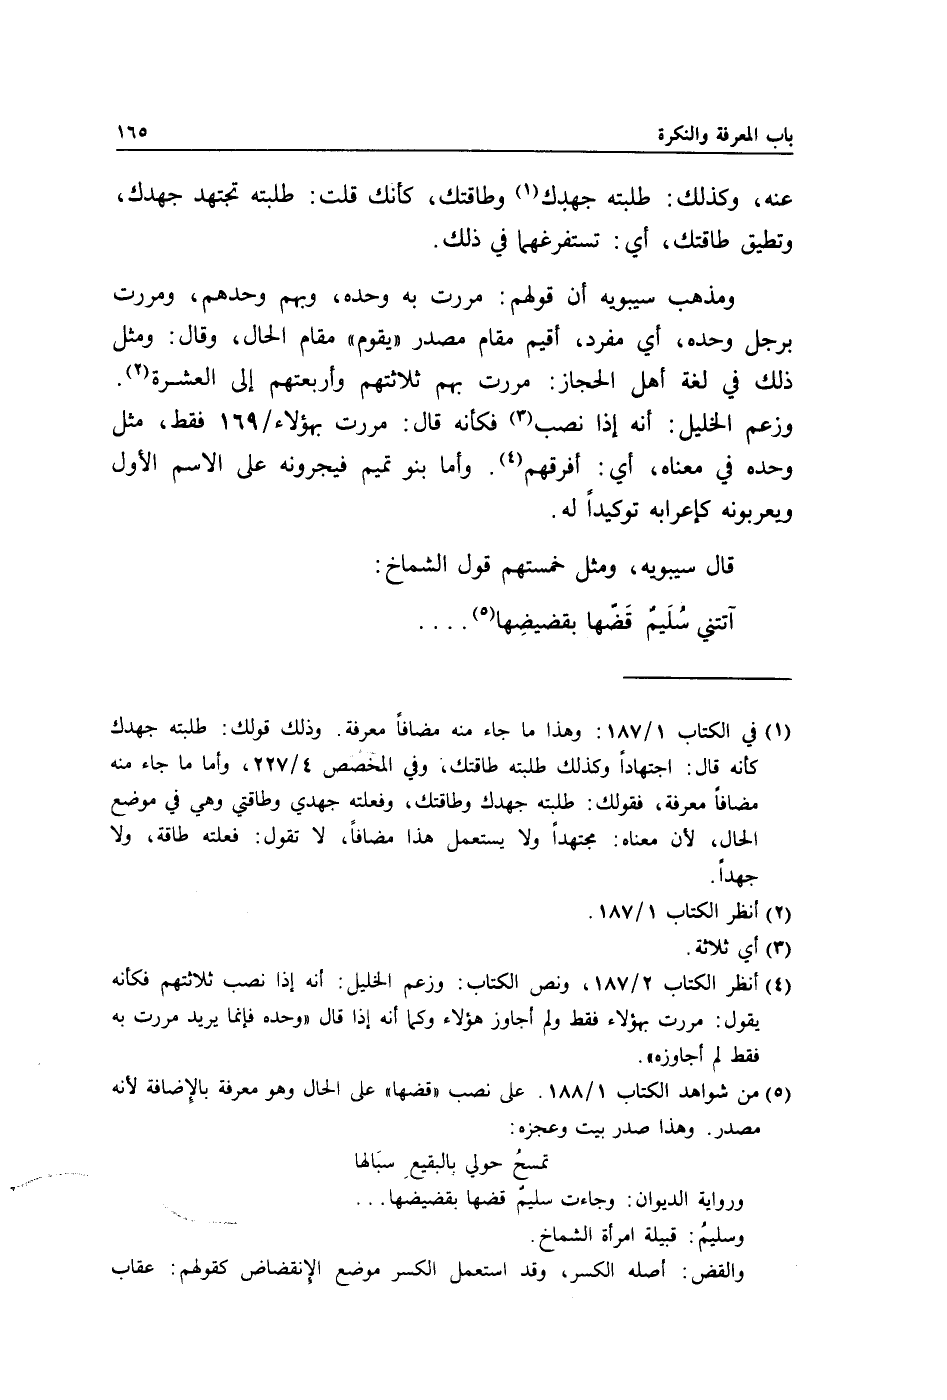 باب المعرفة والنكرة ١٦٥
عنه، وكذلك: طلبته جهدك(١) وطاقتك، كأنك قلت: طلبته تجتهد جهدك،
وتطيق طاقتك، أي: تستفرغهما في ذلك.
ومذهب سيبويه أن قولهم: مررت به وحده، وبهم وحدهم، ومررت
برجل وحده، أي مفرد، أقيم مقام مصدر «يقوم» مقام الحال، وقال: ومثل
ذلك في لغة أهل الحجاز: مررت بهم ثلاثتهم وأربعتهم إلى العشرة(٢).
وزعم الخليل: أنه إذا نصب(٣) فكأنه قال: مررت بهؤلاء/١٦٩ فقط، مثل
وحده في معناه، أي: أفرقهم(٤). وأما بنو تميم فيجرونه على الاسم الأول
ويعربونه كإعرابه توكيداً له.
قال سيبويه، ومثل خمستهم قول الشماخ:
آتتني سُلَيمٌ قَضّها بقضيضِها(٥)....
(١) في الكتاب ١٨٧/١: وهذا ما جاء منه مضافاً معرفة. وذلك قولك: طلبته جهدك
كأنه قال: اجتهاداً وكذلك طلبته طاقتك، وفي المخصص ٢٢٧/٤، وأما ما جاء منه
مضافاً معرفة، فقولك: طلبته جهدك وطاقتك، وفعلته جهدي وطاقتي وهي في موضع
الحال، لأن معناه: مجتهداً ولا يستعمل هذا مضافاً، لا تقول: فعلته طاقة، ولا
جهداً.
(٢) أنظر الكتاب ١٨٧/١.
(٣) أي ثلاثة.
(٤) أنظر الكتاب ١٨٧/٢، ونص الكتاب: وزعم الخليل: أنه إذا نصب ثلاثتهم فكأنه
يقول: مررت بهؤلاء فقط ولم أجاوز هؤلاء وكما أنه إذا قال «وحده فإنما يريد مررت به
فقط لم أجاوزه».
(٥) من شواهد الكتاب ١٨٨/١. على نصب «قضها» على الحال وهو معرفة بالإضافة لأنه
مصدر. وهذا صدر بيت وعجزه:
تمسحُ حولي بالبقيعِ سبَالها
ورواية الديوان: وجاءت سليمٌ قضها بقضيضها...
وسليمُ: قبيلة امرأة الشماخ.
والقض: أصله الكسر، وقد استعمل الكسر موضع الإنقضاض كقولهم: عقاب